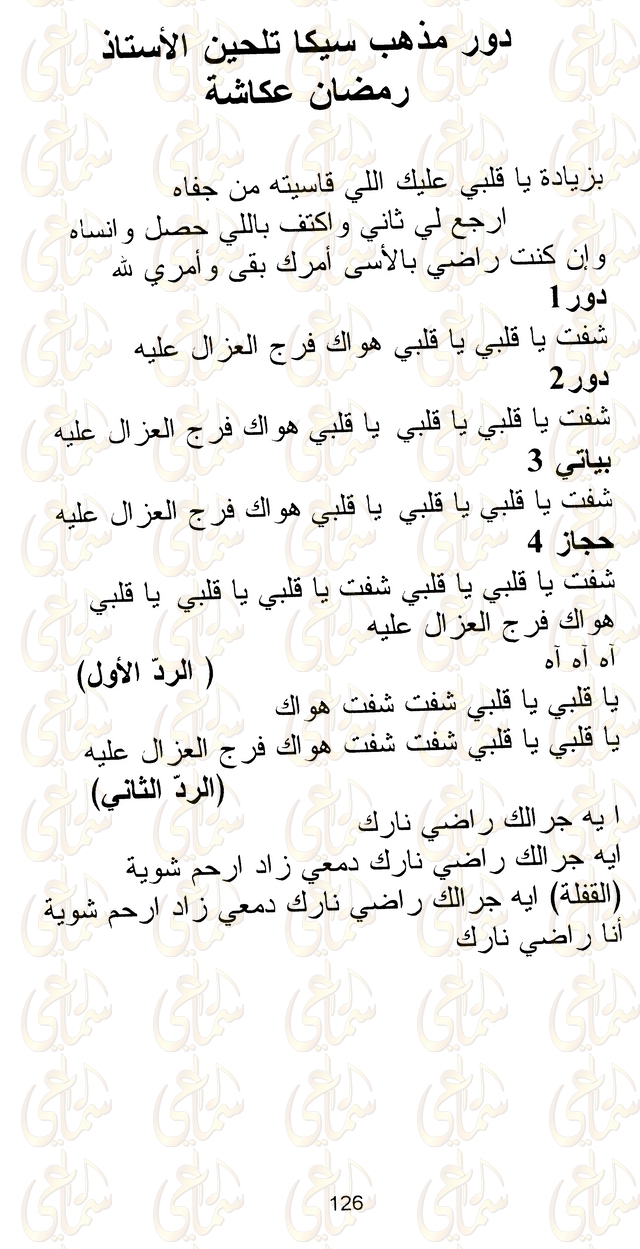 دور مذهب سيكا تلحين الأستاذ
رمضان عكاشة
بزيادة يا قلبي عليك اللي قاسيته من جفاه
ارجع لي ثاني واكتف باللي حصل وانساه
وإن كنت راضي بالأسى أمرك بقى وأمري لله
دور1
شفت يا قلبي يا قلبي هواك فرج العزال عليه
دور2
شفت يا قلبي يا قلبي يا قلبي هواك فرج العزال عليه
بياتي 3
شفت يا قلبي يا قلبي يا قلبي هواك فرج العزال عليه
حجاز 4
شفت يا قلبي يا قلبي شفت يا قلبي يا قلبي يا قلبي
هواك فرج العزال عليه
آه آه آه ( الردّ الأول)
يا قلبي يا قلبي شفت شفت هواك
يا قلبي يا قلبي شفت شفت هواك فرج العزال عليه
(الردّ الثاني)
ا يه جرالك راضي نارك
ايه جرالك راضي نارك دمعي زاد ارحم شوية
(القفلة) ايه جرالك راضي نارك دمعي زاد ارحم شوية
أنا راضي نارك
126